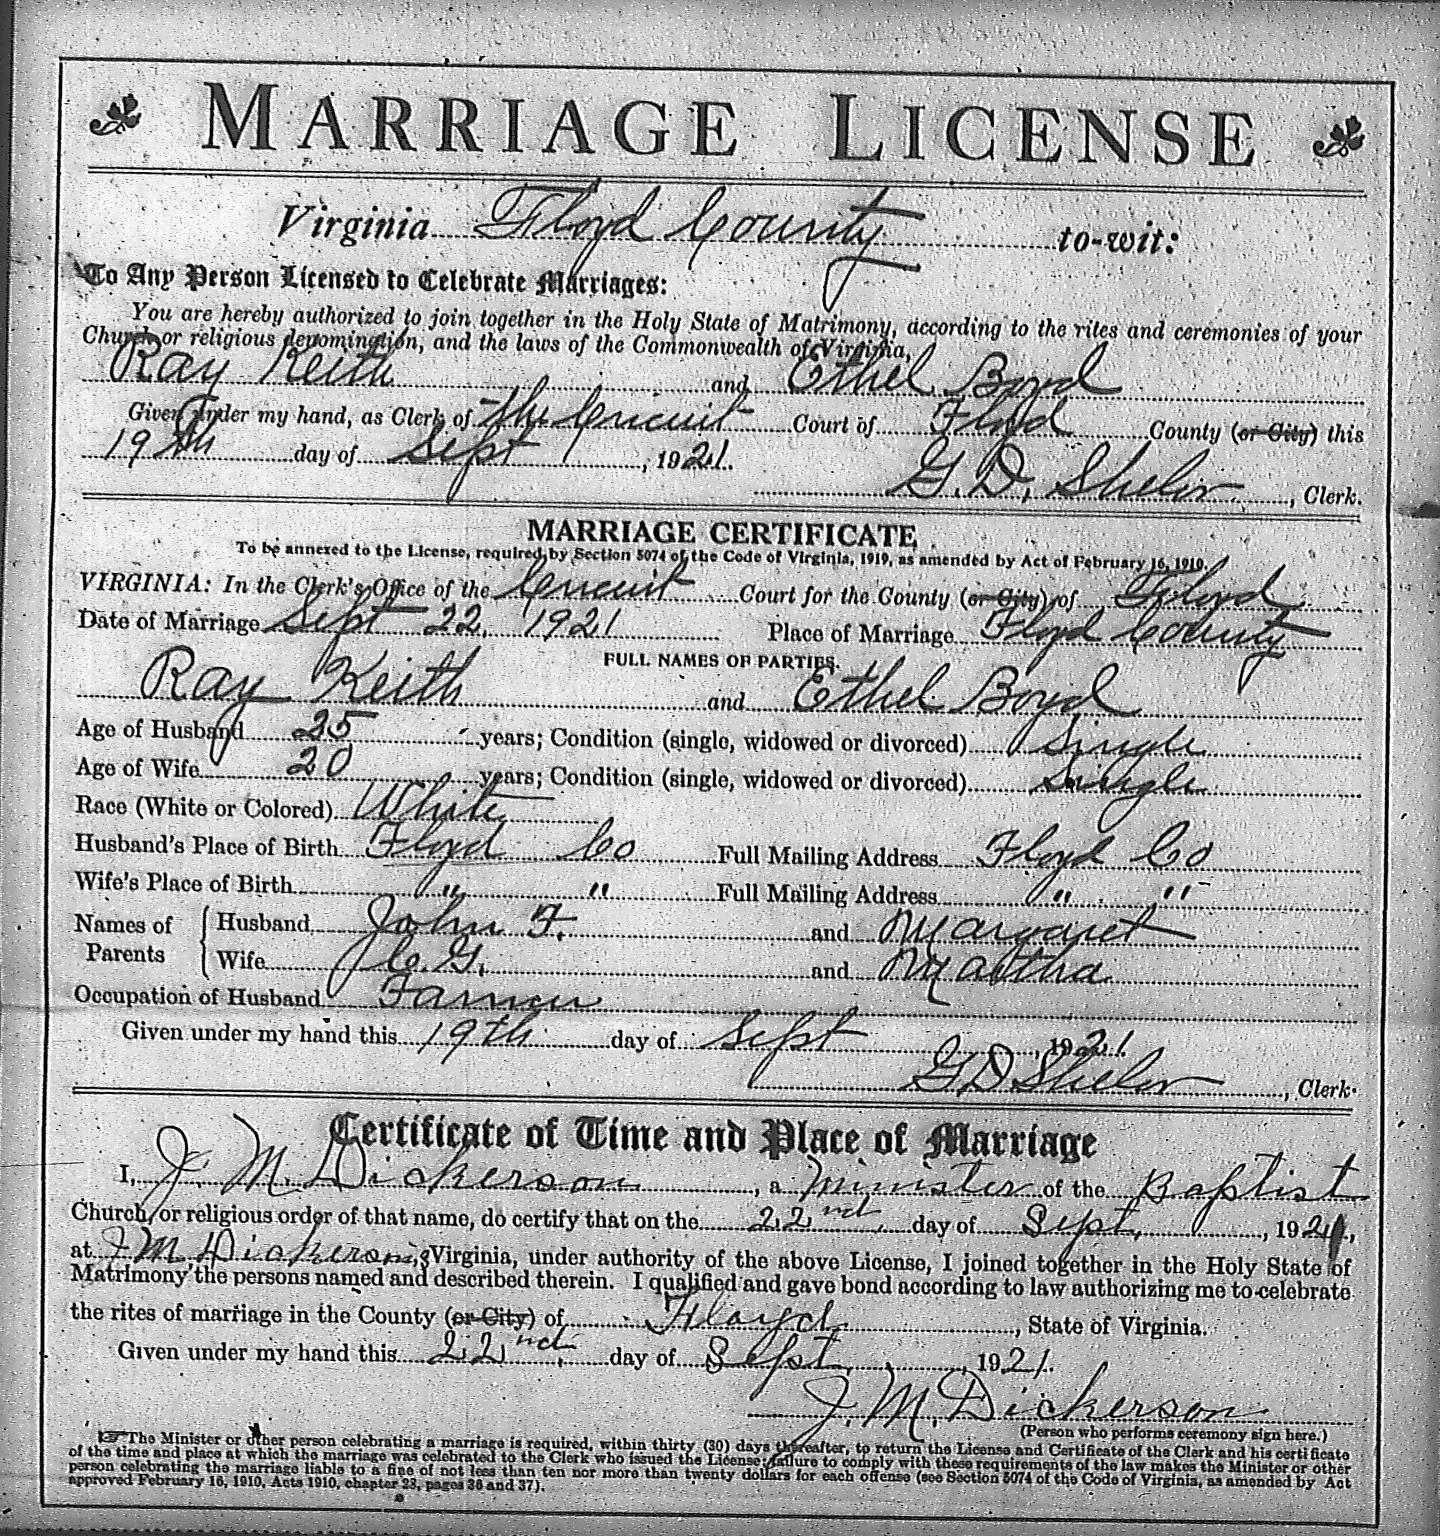 MARRIAGE LICENSE
Virginia Floyd County to-wit:
To Any Person Licensed to Celebrate Marriages:
You are hereby authorized to join together in the Holy State of Matrimony, according to the rites and ceremonies of your
Church or religious denomination, and the laws of the Commonwealth of Virginia,
Ray Keith and Ethel Boyd
Given under my hand, as Clerk of the Circuit Court of Floyd County (or City) this
19th day of Sept, 1921.
G. D. Shelor, Clerk.
MARRIAGE CERTIFICATE
To be annexed to the License, required by Section 5074 of the Code of Virginia, 1919, as amended by Act of February 16, 1910.
VIRGINIA: In the Clerk's Office of the Circuit Court for the County (or City) of Floyd
Date of Marriage Sept 22, 1921 Place of Marriage Floyd County
FULL NAMES OF PARTIES.
Ray Keith and Ethel Boyd
Age of Husband 25 years; Condition (single, widowed or divorced) Single
Age of Wife 20 years; Condition (single, widowed or divorced) Single
Race (White or Colored) White
Husband's Place of Birth Floyd Co Full Mailing Address Floyd Co
Wife's Place of Birth " " Full Mailing Address " "
Names of Parents { Husband John F. and Margaret
Wife C. G. and Martha
Occupation of Husband Farmer
Given under my hand this 19th day of Sept, 1921.
G D Shelor, Clerk.
Certificate of Time and Place of Marriage
I, J. M. Dickerson, a Minister of the Baptist
Church, or religious order of that name, do certify that on the 22nd day of Sept, 1921,
at J M Dickerson,s Virginia, under authority of the above License, I joined together in the Holy State of
Matrimony the persons named and described therein. I qualified and gave bond according to law authorizing me to celebrate
the rites of marriage in the County (or City) of Floyd, State of Virginia.
Given under my hand this 22nd day of Sept, 1921.
J. M. Dickerson
(Person who performs ceremony sign here.)
☞ The Minister or other person celebrating a marriage is required, within thirty (30) days thereafter, to return the License and Certificate of the Clerk and his certificate
of the time and place at which the marriage was celebrated to the Clerk who issued the License; failure to comply with these requirements of the law makes the Minister or other
person celebrating the marriage liable to a fine of not less than ten nor more than twenty dollars for each offense (see Section 5074 of the Code of Virginia, as amended by Act
approved February 16, 1910, Acts 1910, chapter 28, pages 36 and 37).